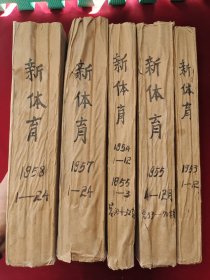 新体育
1958
1—24
新体育
1957
1—24
新体育
1954
1—12
1955
1—3
新体育
1955
4—12月
新体育
1953
1—12